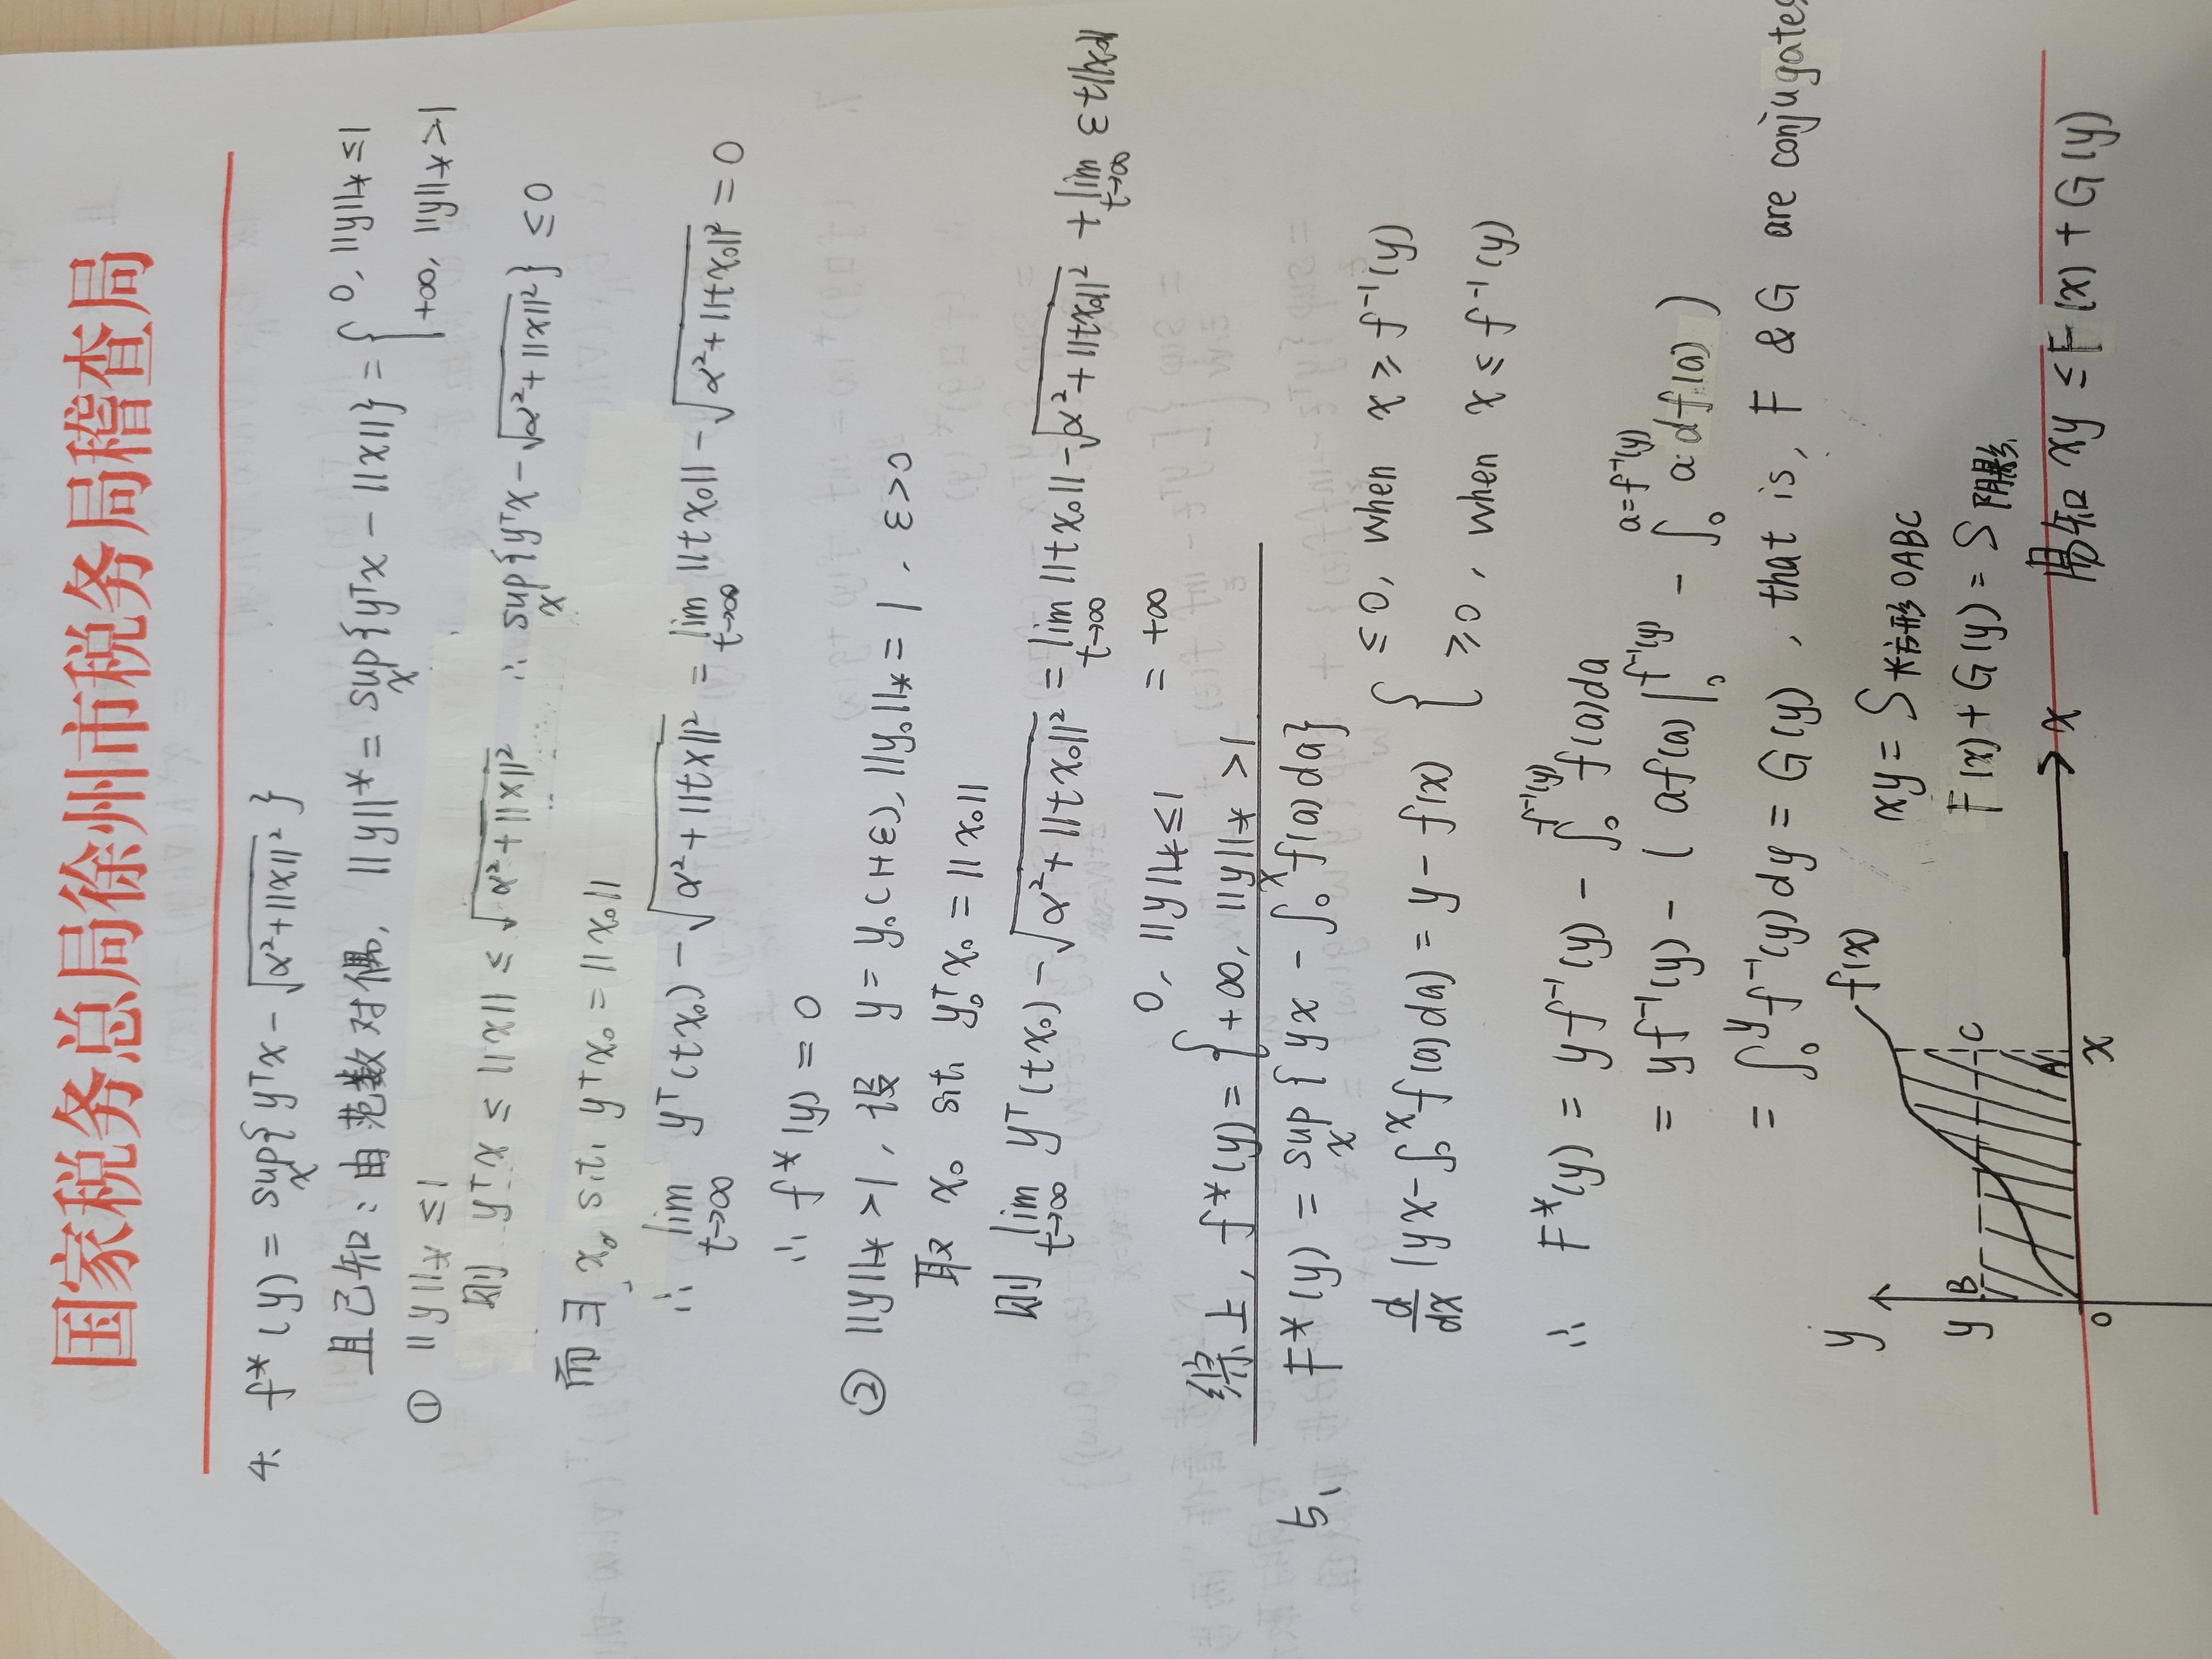 国家税务总局徐州市税务局稽查局
4、 f*(y) = sup_x{ yᵀx - √(α²+||x||²) }
且已知：由范数对偶, ||y||* = sup_x{yᵀx - ||x||} = { 0, ||y||_* ≤1
+∞, ||y||_* >1
① ||y||_* ≤1
则 yᵀx ≤ ||x|| ≤ √(α²+||x||²) ∴ sup_x{yᵀx - √(α²+||x||²)} ≤ 0
而 ∃ x₀ s.t. yᵀx₀ = ||x₀||
∴ lim_{t→∞} yᵀ(tx₀) - √(α²+||tx||²) = lim_{t→∞} ||tx₀|| - √(α²+||tx₀||²) = 0
∴ f*(y) = 0
② ||y||_* >1, 设 y = y₀(1+ε), ||y₀||_* = 1, ε>0
取 x₀ s.t. y₀ᵀx₀ = ||x₀||
则 lim_{t→∞} yᵀ(tx₀) - √(α²+||tx₀||²) = lim_{t→∞} ||tx₀|| - √(α²+||tx₀||²) + lim_{t→∞} εt||x₀||
= +∞
综上, f*(y) = { 0, ||y||_* ≤1
+∞, ||y||_* >1
5、 F*(y) = sup_x { yx - ∫₀ˣ f(a)da}
d/dx (yx - ∫₀ˣ f(a)da) = y - f(x) { ≤0, when x ≥ f⁻¹(y)
≥0, when x ≤ f⁻¹(y)
∴ F*(y) = yf⁻¹(y) - ∫₀^{f⁻¹(y)} f(a)da
= yf⁻¹(y) - ( af(a)|₀^{f⁻¹(y)} - ∫₀^{a=f⁻¹(y)} a·df(a) )
= ∫₀ʸ f⁻¹(y)dy = G(y), that is, F & G are conjugates
y
f(x)
xy = S长方形OABC
y B C
F(x)+G(y) = S阴影
A
x
易知 xy ≤ F(x) + G(y)
0 x